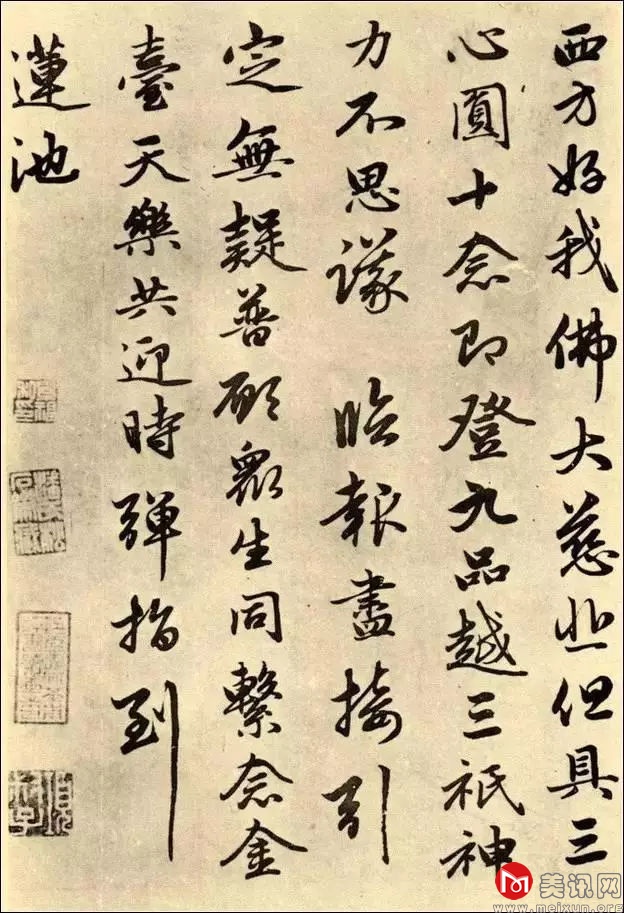 西方好我佛大慈悲但具三
心圓十念即登九品越三祇神
力不思議 臨報盡接引
定無疑普願眾生同繫念金
臺天樂共迎時彈指到
蓮池
美讯网
www.meixun.org